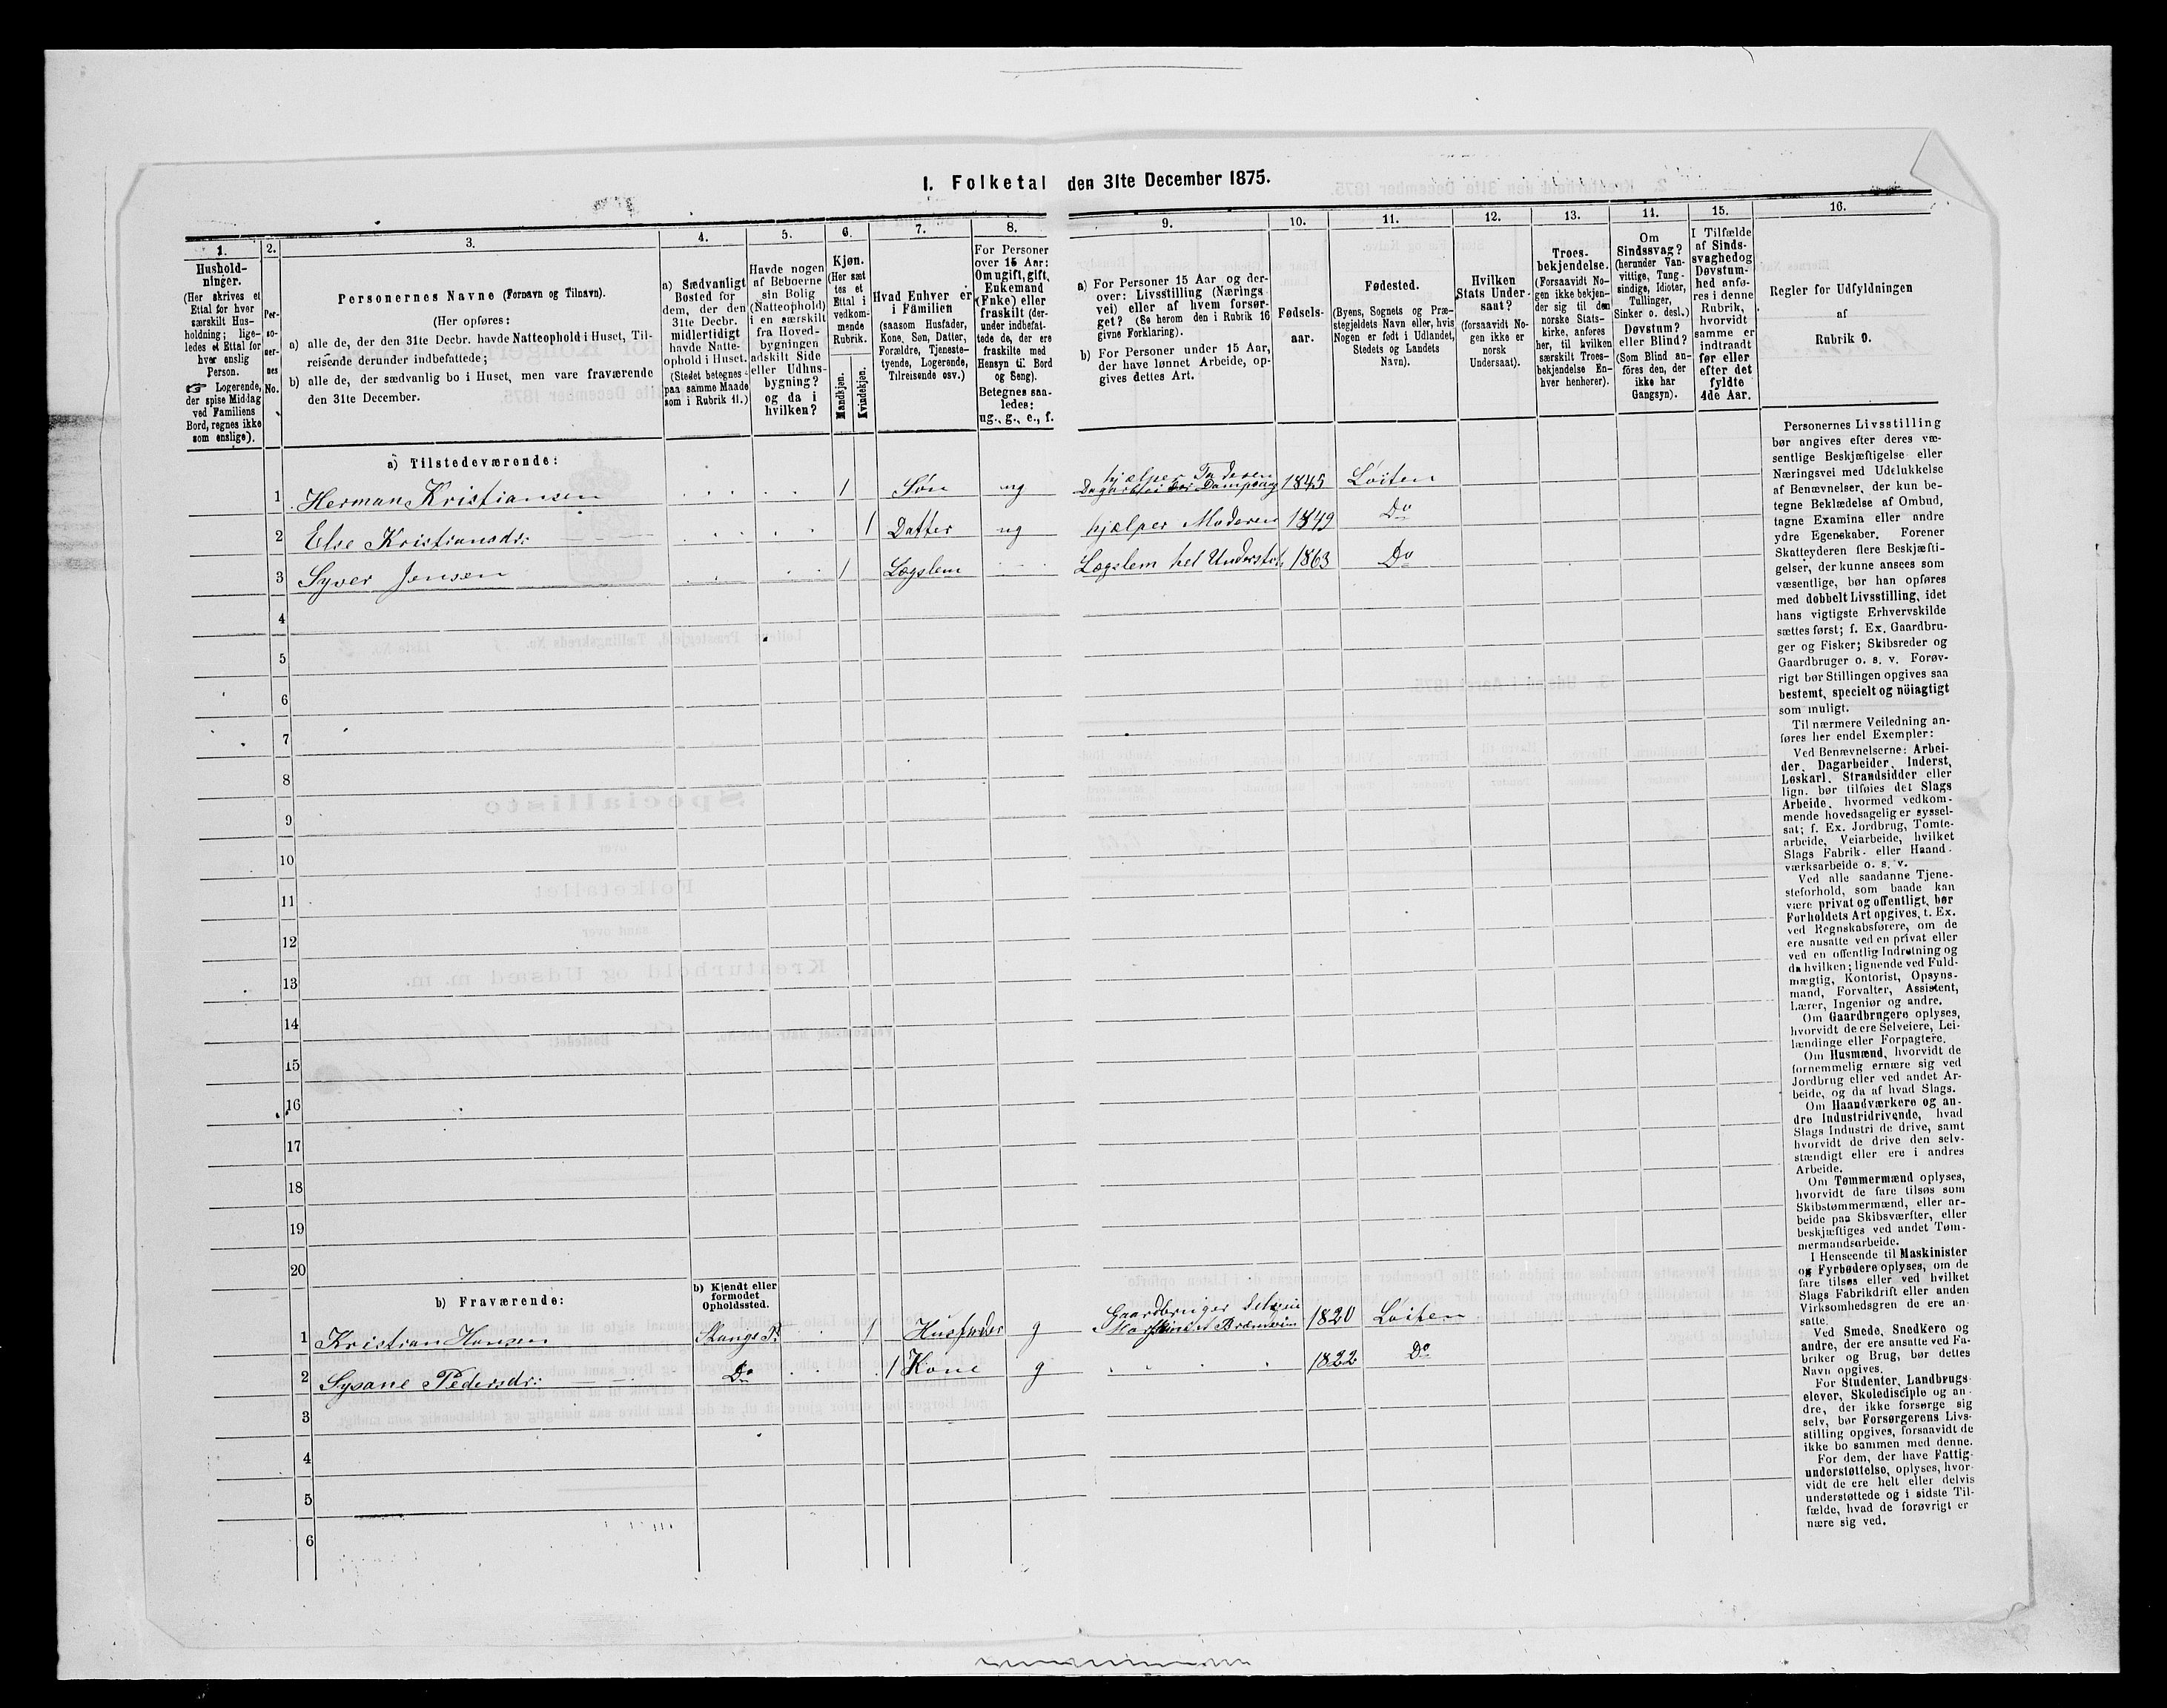 I. Folketal den 31te December 1875.
1. 2. 3. 4. 5. 6. 7. 8. 9. 10. 11. 12. 13. 14. 15. 16.
Hushold-
ninger.
(Her skrives et
Ettal for hver
særskilt Hus-
holdning; lige-
ledes et Ettal for
hver enslig
Person.
☞ Logerende,
der spise Middag
ved Familiens
Bord, regnes ikke
som enslige).
Per-
so-
ner-
nes
No.
Personernes Navne (Fornavn og Tilnavn).
(Her opføres:
a) alle de, der den 31te Decbr. havde Natteophold i Huset, Til-
reisende derunder indbefattede;
b) alle de, der sædvanlig bo i Huset, men vare fraværende
den 31te December.
a) Sædvanligt
Bosted for
dem, der den
31te Decbr.
midlertidigt
havde Natte-
ophold i Huset.
(Stedet betegnes
paa samme Maade
som i Rubrik 11.)
Havde nogen
af Beboerne
sin Bolig
(Natteophold)
i en særskilt
fra Hoved-
bygningen
adskilt Side
eller Udhus-
bygning?
og da i
hvilken?
Kjøn.
(Her sæt
tes et
Ettal i
vedkom-
mende
Rubrik.
Mandkjøn.
Kvindekjøn.
Hvad Enhver er
i Familien
(saasom Husfader,
Kone, Søn, Datter,
Forældre, Tjeneste-
tyende, Logerende,
Tilreisende osv.)
For Personer
over 15 Aar:
Om ugift, gift,
Enkemand
(Enke) eller
fraskilt (der-
under indbefat-
tede de, der ere
fraskilte med
Hensyn til Bord
og Seng).
Betegnes saa-
ledes:
ug., g., e., f.
a) For Personer 15 Aar og der-
over: Livsstilling (Nærings
vei) eller af hvem forsør-
get? (Se herom den i Rubrik 16
givne Forklaring).
b) For Personer under 15 Aar,
der have lønnet Arbeide, op-
gives dettes Art.
Fødsels-
aar.
Fødested.
(Byens, Sognets og Præ-
stegjeldets Navn eller, hvis
Nogen er født i Udlandet,
Stedets og Landets
Navn).
Hvilken
Stats Under-
saat?
(forsaavidt No-
gen ikke er
norsk
Undersaat).
Troes-
bekjendelse.
(Forsaavidt No-
gen ikke bekjen-
der sig til den
norske Stats-
kirke, anføres
her, til hvilken
særskilt Troes-
bekjendelse En-
hver henhører).
Om
Sindssvag?
(herunder Van-
vittige, Tung-
sindige, Idioter,
Tullinger,
Sinker o. desl.)
Døvstum?
eller Blind?
(Som Blind an-
føres den, der
ikke har
Gangsyn).
I Tilfælde
af Sinds-
svaghed og
Døvstum-
hed anfø-
res i denne
Rubrik,
hvorvidt
samme er
indtraadt
før eller
efter det
fyldte
4de Aar.
Regler for Udfyldningen
af
Rubrik 9.
a) Tilstedeværende:
hjælper Faderen
1 Herman Kristiansen 1 Søn ug 1845 Løiten
2 Else Kristiansdr: 1 Datter ug hjælper Moderen 1849 Do
3 Syver Jensen 1 Lægslem Lægslem hel Understøt. 1863 Do
4
5
6
7
8
9
10
11
12
13
14
15
16
17
18
19
20
b) Fraværende:
b) Kjendt eller
formodet
Opholdssted.
Gaardbruger Selveier
1 Kristian Hansen Stange P. 1 Husfader g 1820 Løiten
2 Sysane Pedersdr: Do 1 Kone g 1822 Do
3
4
5
6
Personernes Livsstilling
bør angives efter deres væ-
sentlige Beskjæftigelse eller
Næringsvei med Udelukkelse
af Benævnelser, der kun be-
tegne Beklædelse af Ombud,
tagne Examina eller andre
ydre Egenskaber. Forener
Skatteyderen flere Beskjæfti-
gelser, der kunne ansees som
væsentlige, bør han opføres
med dobbelt Livsstilling, idet
hans vigtigste Erhvervskilde
sættes først; f. Ex. Gaardbru-
ger og Fisker; Skibsreder og
Gaardbruger o. s. v. Forøv-
rigt bør Stillingen opgives saa
bestemt, specielt og nöiagtigt
som muligt.
Til nærmere Veiledning an-
føres her endel Exempler:
Ved Benævnelserne: Arbei-
der, Dagarbeider, Inderst,
Løskarl, Strandsidder eller
lign. bør tilføies det Slags
Arbeide, hvormed vedkom-
mende hovedsagelig er syssel-
sat; f. Ex. Jordbrug, Tomte-
arbeide, Veiarbeide, hvilket
Slags Fabrik- eller Haand-
værksarbeide o. s. v.
Ved alle saadanne Tjene-
steforhold, som baade kan
være privat og offentligt, bør
Forholdets Art opgives, t. Ex.
ved Regnskabsførere, om de
ere ansatte ved en privat eller
ved en offentlig Indretning og
da hvilken; lignende ved Fuld-
mægtig, Kontorist, Opsyns-
mand, Forvalter, Assistent,
Lærer, Ingeniør og andre.
Om Gaardbrugere oplyses,
hvorvidt de ere Selveiere, Lei-
lændinge eller Forpagtere.
Om Husmænd, hvorvidt de
fornemmelig ernære sig ved
Jordbrug eller ved andet Ar-
beide, og da af hvad Slags.
Om Haandværkere og an-
dre Industridrivende, hvad
Slags Industri de drive, samt
hvorvidt de drive den selv-
stændigt eller ere i andres
Arbeide.
Om Tømmermænd oplyses,
hvorvidt de fare tilsøs som
Skibstømmermænd, eller ar-
beide paa Skibsværfter, eller
beskjæftiges ved andet Tøm-
mermandsarbeide.
I Henseende til Maskinister
og Fyrbødere oplyses, om de
fare tilsøs eller ved hvilket
Slags Fabrikdrift eller anden
Virksomhedsgren de ere an-
satte.
Ved Smede, Snedkere og
andre, der ere ansatte ved Fa-
briker og Brug, bør dettes
Navn opgives.
For Studenter, Landbrugs-
elever, Skoledisciple og an-
dre, der ikke forsørge sig
selv, bør Forsørgerens Livs-
stilling opgives, forsaavidt de
ikke bo sammen med denne.
For dem, der have Fattig-
understøttelse, oplyses, hvor-
vidt de ere helt eller delvis
understøttede og i sidste Til-
fælde, hvad de forøvrigt er
nære sig ved.